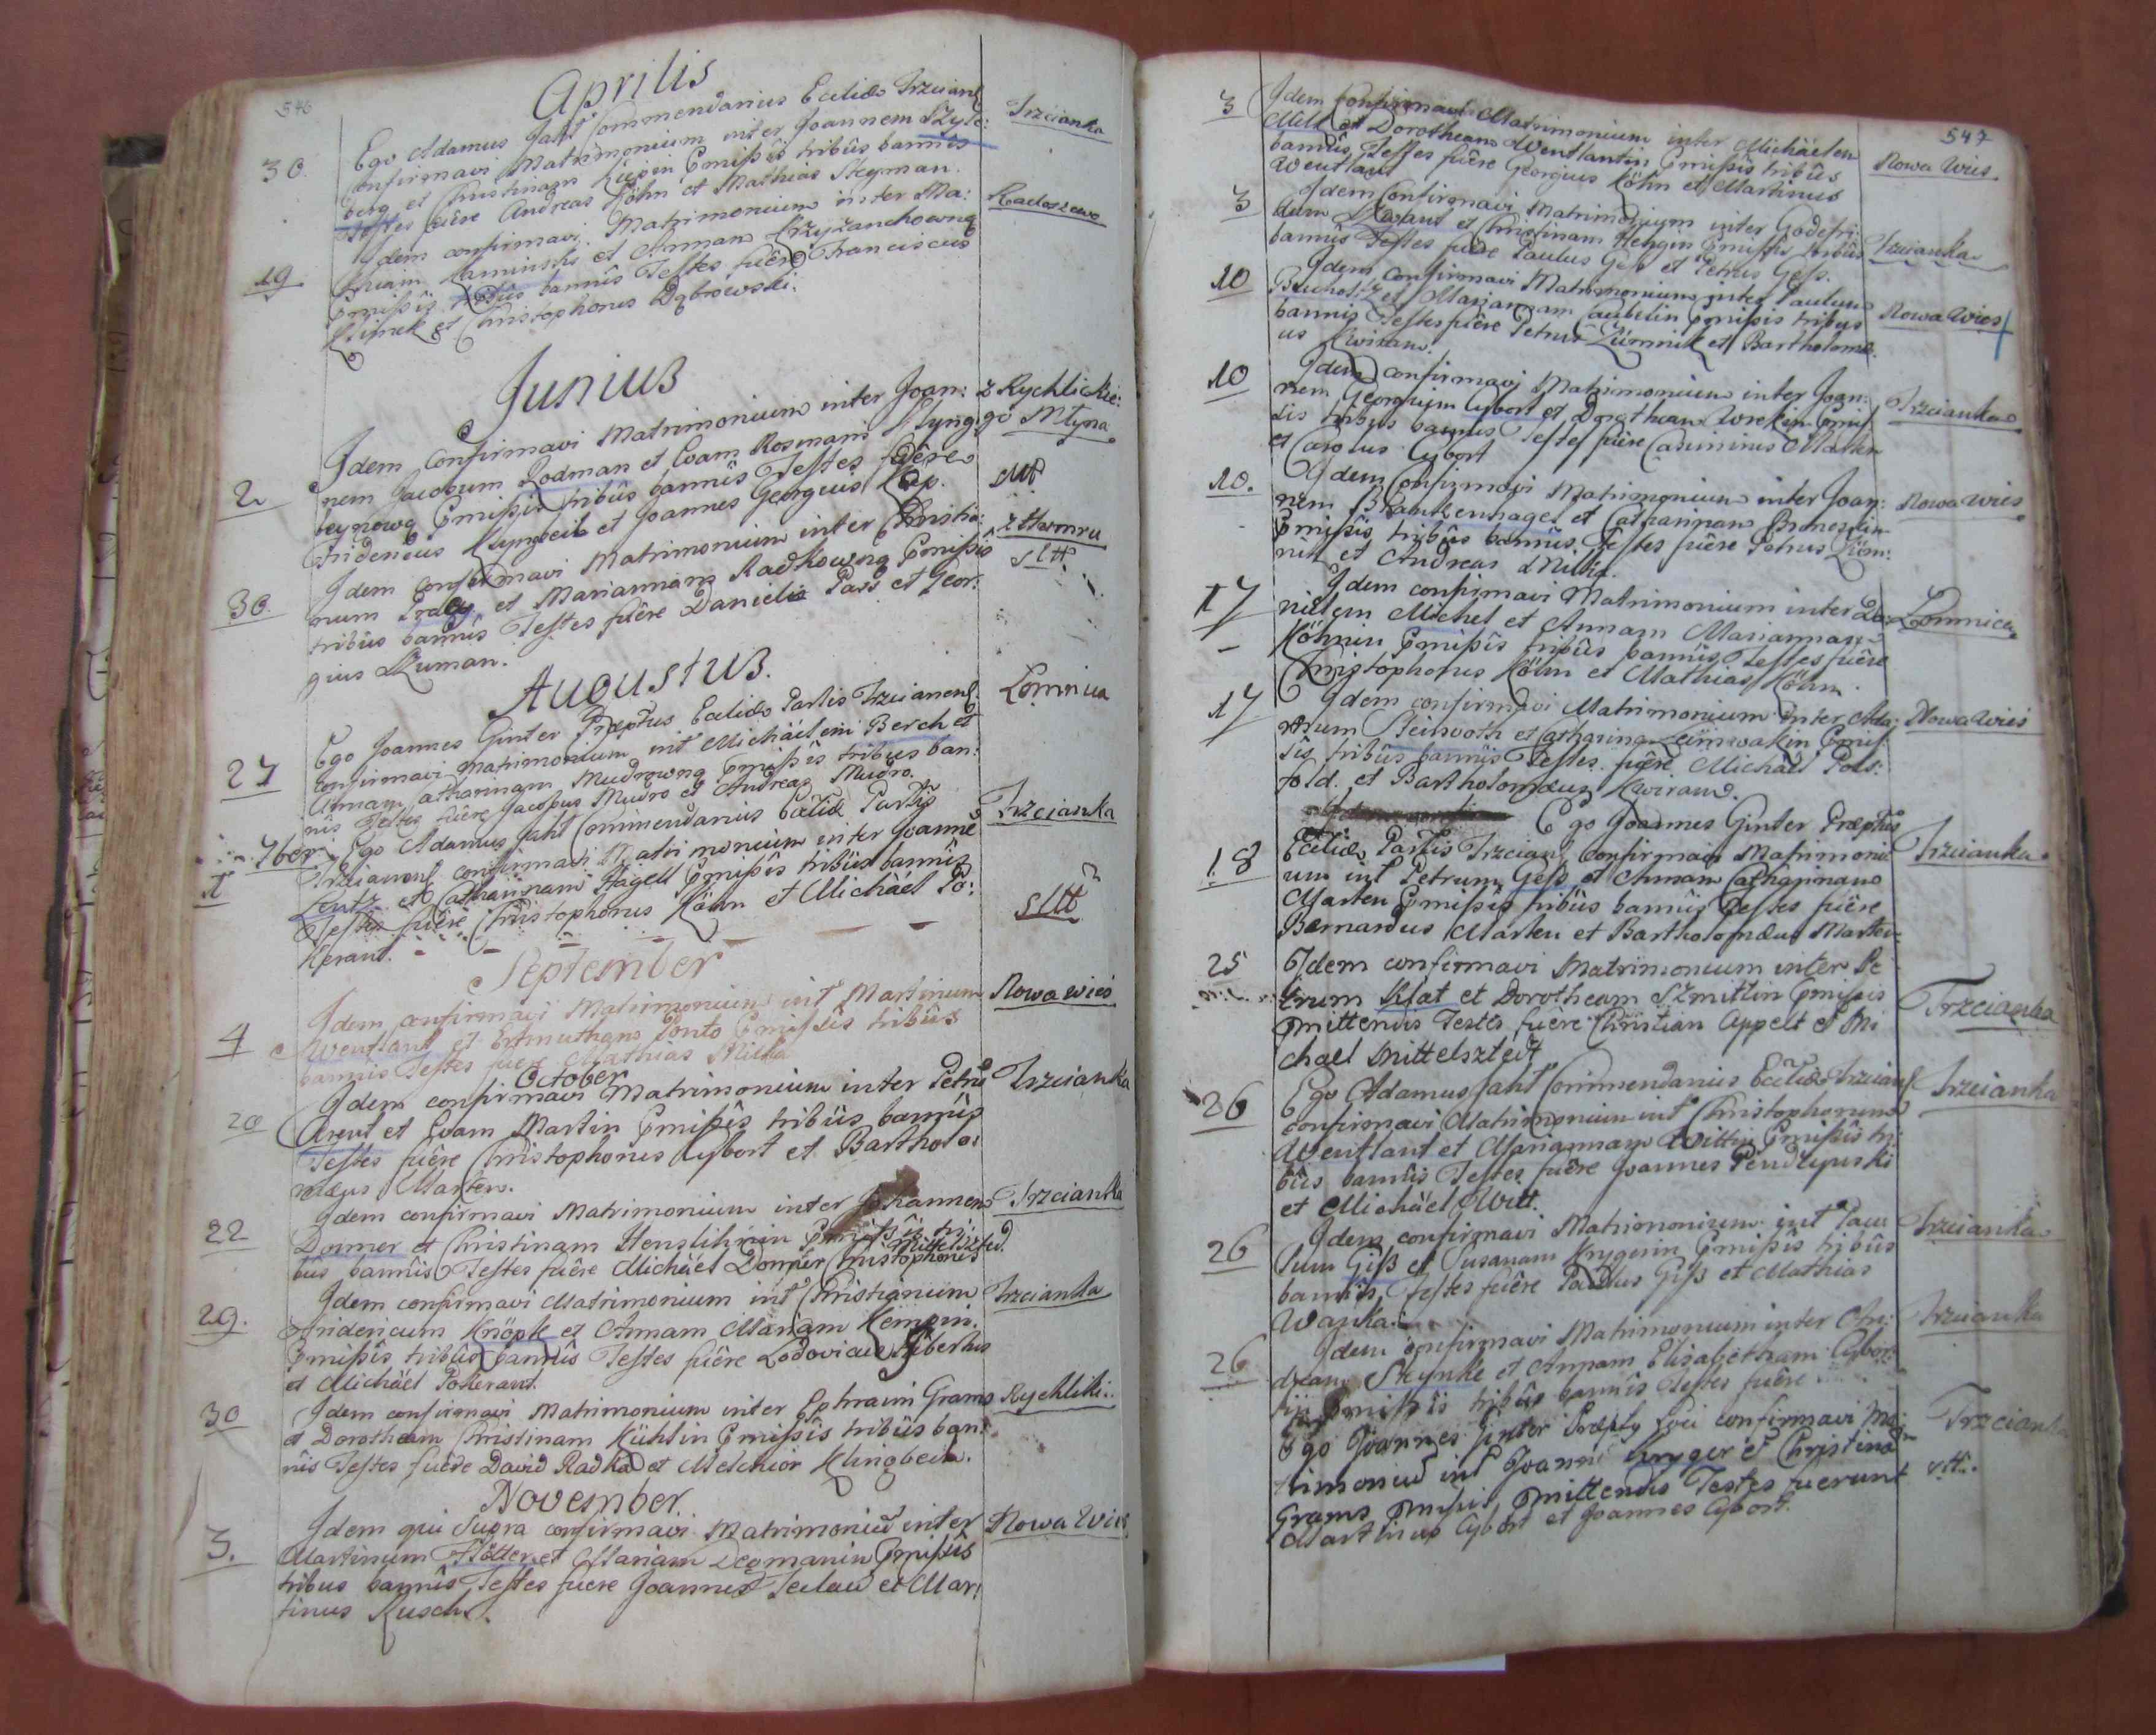 546
Aprilis
30. Ego Adamus Jaht Commendarius Eccliae Trzcians Trzcianka
confirmavi Matrimonium inter Joannem Szyle:
berg et Christinam Kiepin Pmissis tribus bannis
Testes fuere Andreas Köhn et Mathias Stegman.
19 Idem confirmavi Matrimonium inter Ma: Radoszewo
thiam Kaminski et Annam Krzyżanchowną
Pmissis tribus bannis Testes fuere Franciscus
Klimek et Christophorus Dąbrowski.
Junius
2 Idem Confirmavi Matrimonium inter Joan: z Rychlickie:
nem Jacobum Rodman et Evam Rosinam Klyng go Młyna
beynową Pmissis tribus bannis Testes fuere
Fridericus Klyngbeil et Joannes Georgius
30. Idem confirmavi Matrimonium inter Christia: z Hamru
num et Mariannam Radkowną Pmissis sltt
tribus bannis Testes fuere Danielis Pass et Geor:
gius Szuman.
Augustus.
27 Ego Joannes Ginter Praeptus Eccliae Partis Trzcianens Łomnica
confirmavi matrimonium int Michäelem Berch et
Annam Catharinam Mudrowną Pmissis tribus ban:
nis Testes fuere Jacobus Mudro et Andreas Mudro.
7ber Ego Adamus Jaht Commendarius Eccliae Partis Trzcianka
1 Trzcianens confirmavi Matrimonium inter Joannē
Lentz et Catharinam Hagell Pmissis tribus bannis
Testes fuere Christophorus Köhn et Michäel Po: sltt
kerant.
September
4 Idem confirmavi Matrimonium int Martinum Nowa wieś
Wentlant et Ertmutham Ponto Pmissis tribus
bannis Testes fuere Mathias Milka
October
20 Idem confirmavi Matrimonium inter Petrū Trzcianka
Arent et Evam Martin Pmissis tribus bannis
Testes fuere Christophorus Cybort et Bartholo:
maeus Marten.
22 Idem confirmavi Matrimonium inter Johannem Trzcianka
Domer et Christinam Henslihnin Pmissis tri:
bus bannis Testes fuere Michäel Domer Christophorus Mittelszted.
29. Idem confirmavi Matrimonium int Christianum Trzcianka
Fridericum Knöpk et Annam Mariam Kempin.
Pmissis tribus bannis Testes fuere Lodovicus Hibertus
et Michäel Pokerant.
30 Idem confirmavi Matrimonium inter Ephraim Grams Rychliki.
et Dorotheam Christinam Kühlin Pmissis tribus ban:
nis Testes fuere David Radka et Melchior Klingbeil.
November.
3. Idem qui Supra confirmavi Matrimoniū inter Nowa Wieś
Martinum Flötter et Mariam Degmanin Pmissis
tribus bannis Testes fuere Joannes Teclau et Mar:
tinus Rusch.
547
3 Idem Confirmavi Matrimonium inter Michäelem Nowa Wies.
Milk et Dorotheam Wentlantin Pmissis tribus
bannis Testes fuere Georgius Köhn et Martinus
Wentlant
3 Idem Confirmavi Matrimonium inter Godefri: Trzcianka
dum et Christinam Hengin Pmissis tribus
bannis Testes fuere Paulus Gess et Petrus Gess.
10 Idem confirmavi Matrimonium inter Paulum Nowa Wies
Bucholtz et Mariannam Caubelin Pmissis tribus
bannis Testes fuere Petrus Zümnik et Bartholomae:
us Kwiram.
10 Idem confirmavi Matrimonium inter Joan: Trzcianka
nem Georgium Cybort et Dorotheam Worekin Pmis:
sis tribus bannis Testes fuere Casimirus Marten
et Carolus Cybort
10. Idem Confirmavi Matrimonium inter Joan: Nowa wies
nem Brankenhagel et Catharinam
Pmissis tribus bannis. Testes fuere Petrus Züm:
nik et Andreas Milka.
17 Idem confirmavi Matrimonium inter Da: Łomnica
nielem Michel et Annam Mariannam
Köhnin Pmissis tribus bannis Testes fuere
Christophorus Köhn et Mathias Köhn.
17 Idem confirmavi Matrimonium inter Ada: Nowa Wieś
mum Steinvoth et Catharina Zeimwakin Pmis:
sis tribus bannis Testes fuere Michäel Pos:
fold. et Bartholomaeus Kwiram.
Ego Joannes Ginter Praeptus
18 Eccliae Partis Trzcians confirmavi Matrimoni: Trzcianka
um int Petrum Gess et Annam Catharinam
Marten Pmissis tribus bannis Testes fuere
Bernardus Marten et Bartholomaeus Marten
25 Idem confirmavi Matrimonium inter Pe
trum Klat et Dorotheam Szmitlin Pmissis Trzcianka
Pmittendis Testes fuere Christian Appelt et Mi
chael Mittelsztedt
26 Ego Adamus Jaht Commendarius Eccliae Trzcians Trzcianka
confirmavi Matrimonium int Christophorum
Wentlant et Mariannam Wittin Pmissis tri:
bus bannis Testes fuere Joannes Pendzynski
et Michäel Witt.
26 Idem confirmavi Matrimonium int Pau Trzcianka
lum Giss et Susanam Krygerin Pmissis tribus
bannis Testes fuere Paulus Giss et Mathias
Wajtka.
26 Idem confirmavi Matrimonium inter An: Trzcianka
dream Szynke et Annam Elisabetham Cybor:
tin Pmissis tribus bannis Testes fuere
Ego Joannes Ginter Praeptus Loci confirmavi Ma: Trzcianka
trimoniū int Joanem Kryger et Christinam
Grams Pmissis Pmittendis Testes fuerunt
Martinus Cybort et Joannes Cybort.